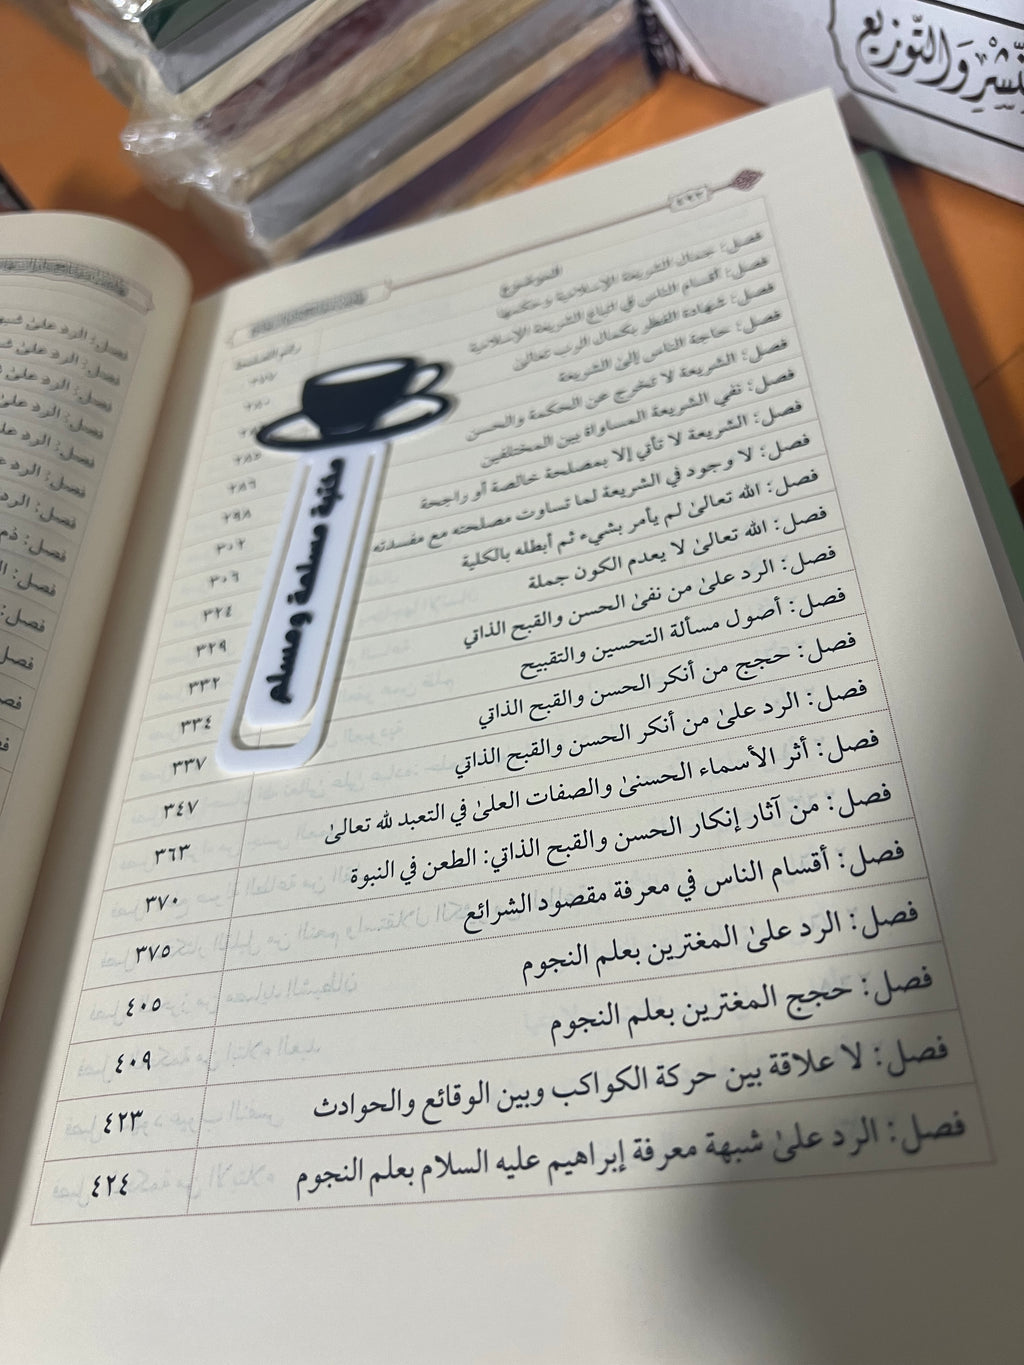 للنشر والتوزيع
الموضوع
رقم الصفحة
فصل: جمال الشريعة الإسلامية وحكمها
فصل: أقسام الناس في اتباع الشريعة الإسلامية
فصل: شهادة الفطر بكمال الرب تعالىٰ
فصل: حاجة الناس إلىٰ الشريعة
فصل: الشريعة لا تخرج عن الحكمة والحسن ٢٨٦
فصل: نفي الشريعة المساواة بين المختلفين ٢٩٨
فصل: الشريعة لا تأتي إلا بمصلحة خالصة أو راجحة ٣٠٢
فصل: لا وجود في الشريعة لما تساوت مصلحته مع مفسدته ٣٠٦
فصل: الله تعالىٰ لم يأمر بشيء ثم أبطله بالكلية ٣٢٤
فصل: الله تعالىٰ لا يعدم الكون جملة ٣٢٩
فصل: الرد علىٰ من نفىٰ الحسن والقبح الذاتي ٣٣٢
فصل: أصول مسألة التحسين والتقبيح ٣٣٤
فصل: حجج من أنكر الحسن والقبح الذاتي ٣٣٧
فصل: الرد علىٰ من أنكر الحسن والقبح الذاتي ٣٤٧
فصل: أثر الأسماء الحسنىٰ والصفات العلىٰ في التعبد لله تعالىٰ ٣٦٣
فصل: من آثار إنكار الحسن والقبح الذاتي: الطعن في النبوة ٣٧٠
فصل: أقسام الناس في معرفة مقصود الشرائع ٣٧٥
فصل: الرد علىٰ المغترين بعلم النجوم ٤٠٥
فصل: حجج المغترين بعلم النجوم ٤٠٩
فصل: لا علاقة بين حركة الكواكب وبين الوقائع والحوادث ٤٢٣
فصل: الرد علىٰ شبهة معرفة إبراهيم عليه السلام بعلم النجوم ٤٢٤
مكتبة مسلمة ومسلم
فصل: الرد علىٰ
فصل: الرد علىٰ
فصل: الرد علىٰ
فصل: الرد علىٰ
فصل: الرد
فصل: الرد
فصل:
فصل:
فصل:
فصل